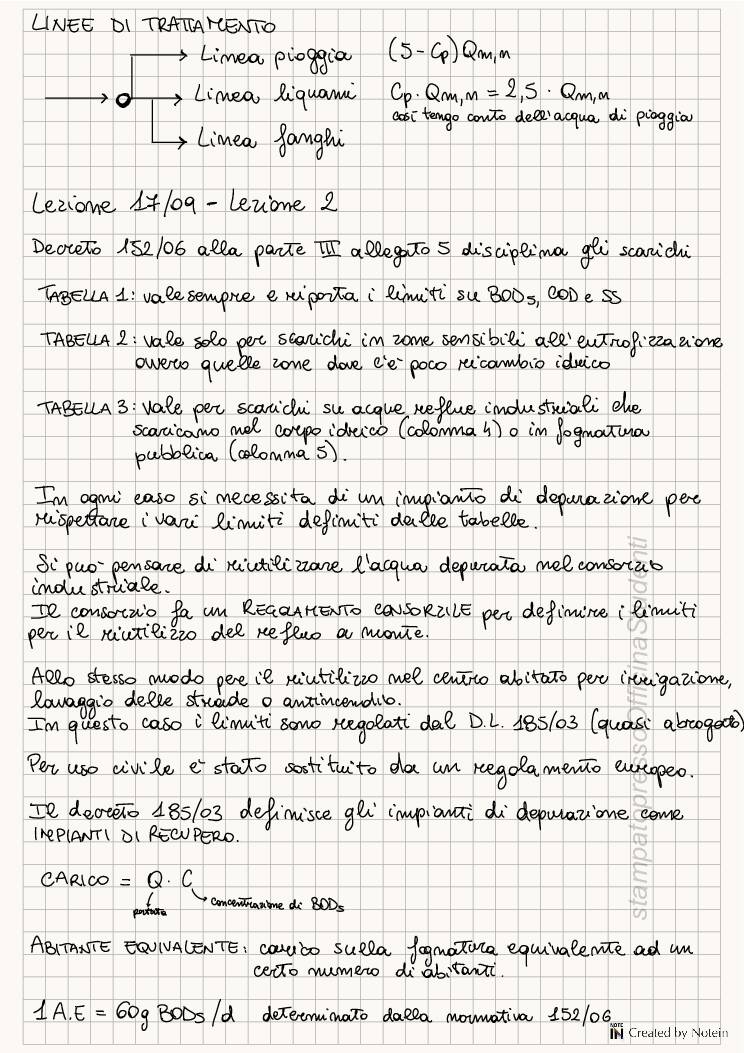 LINEE DI TRATTAMENTO
Linea pioggia (5-Cp)Qm,n
Linea liquami Cp·Qm,n = 2,5 · Qm,n
così tengo conto dell'acqua di pioggia
Linea fanghi
Lezione 17/09 - Lezione 2
Decreto 152/06 alla parte III allegato 5 disciplina gli scarichi
TABELLA 1: vale sempre e riporta i limiti su BOD5, COD e SS
TABELLA 2: vale solo per scarichi in zone sensibili all'eutrofizzazione
ovvero quelle zone dove c'è poco ricambio idrico
TABELLA 3: vale per scarichi su acque reflue industriali che
scaricano nel corpo idrico (colonna 4) o in fognatura
pubblica (colonna 5).
In ogni caso si necessita di un impianto di depurazione per
rispettare i vari limiti definiti dalle tabelle.
Si può pensare di riutilizzare l'acqua depurata nel consorzio
industriale.
Il consorzio fa un REGOLAMENTO CONSORZILE per definire i limiti
per il riutilizzo del refluo a monte.
Allo stesso modo per il riutilizzo nel centro abitato per irrigazione,
lavaggio delle strade o antincendio.
In questo caso i limiti sono regolati dal D.L. 185/03 (quasi abrogato)
Per uso civile è stato sostituito da un regolamento europeo.
Il decreto 185/03 definisce gli impianti di depurazione come
IMPIANTI DI RECUPERO.
CARICO = Q · C
portata
concentrazione di BOD5
ABITANTE EQUIVALENTE: carico sulla fognatura equivalente ad un
certo numero di abitanti.
1 A.E = 60g BOD5/d determinato dalla normativa 152/06
stampatopressoOfficinaStudenti
NOTE IN Created by Notein